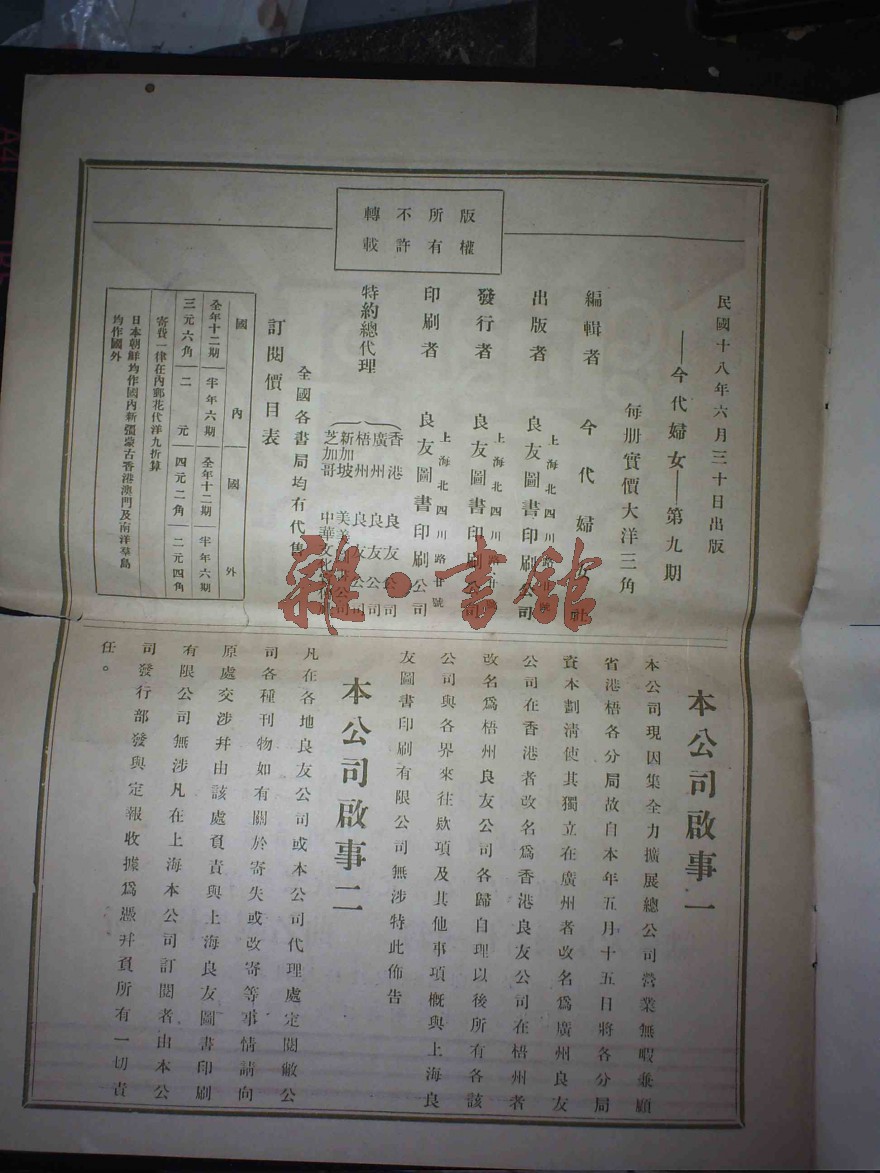 版權所有
不許轉載
民國十八年六月三十日出版
——今代婦女——第九期
每册實價大洋三角
編輯者 今代婦女社
出版者 上海北四川路 號
良友圖書印刷公司
發行者 上海北四川路 號
良友圖書印刷公司
印刷者 上海北四川路廿號
良友圖書印刷公司
特約總代理
香港 良友公司
廣州 良友公司
梧州 良友公司
新加坡 美美 公司
芝加哥 中華文化
全國各書局均有代售
訂閱價目表
國內 國外
全年十二期 半年六期 全年十二期 半年六期
三元六角 二元 四元二角 二元四角
寄費一律在內郵花代洋九折算
日本朝鮮均作國內新彊蒙古香港澳門及南洋羣島
均作國外
本公司啟事一
本公司現因集全力擴展總公司營業無暇兼顧
省港梧各分局故自本年五月十五日將各分局
資本劃清使其獨立在廣州者改名爲廣州良友
公司在香港者改名爲香港良友公司在梧州者
改名爲梧州良友公司各歸自理以後所有各該
公司與各界來往欵項及其他事項概與上海良
友圖書印刷有限公司無涉特此佈告
本公司啟事二
凡在各地良友公司或本公司代理處定閱敝公
司各種刊物如有關於寄失或改寄等事情請向
原處交涉幷由該處負責與上海良友圖書印刷
有限公司無涉凡在上海本公司訂閱者由本公
司發行部發與定報收據爲憑幷負所有一切責
任。
雜·書館